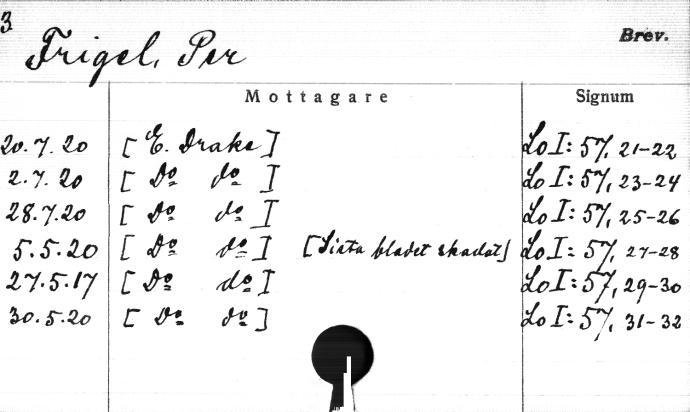 3
Frigel, Per
Brev.
Mottagare
Signum
20.7.20 [E. Drake] Lo I: 57, 21-22
2.7.20 [Do do] Lo I: 57, 23-24
28.7.20 [Do do] Lo I: 57, 25-26
5.5.20 [Do do] [Sista bladet skadat] Lo I: 57, 27-28
27.5.17 [Do do] Lo I: 57, 29-30
30.5.20 [Do do] Lo I: 57, 31-32